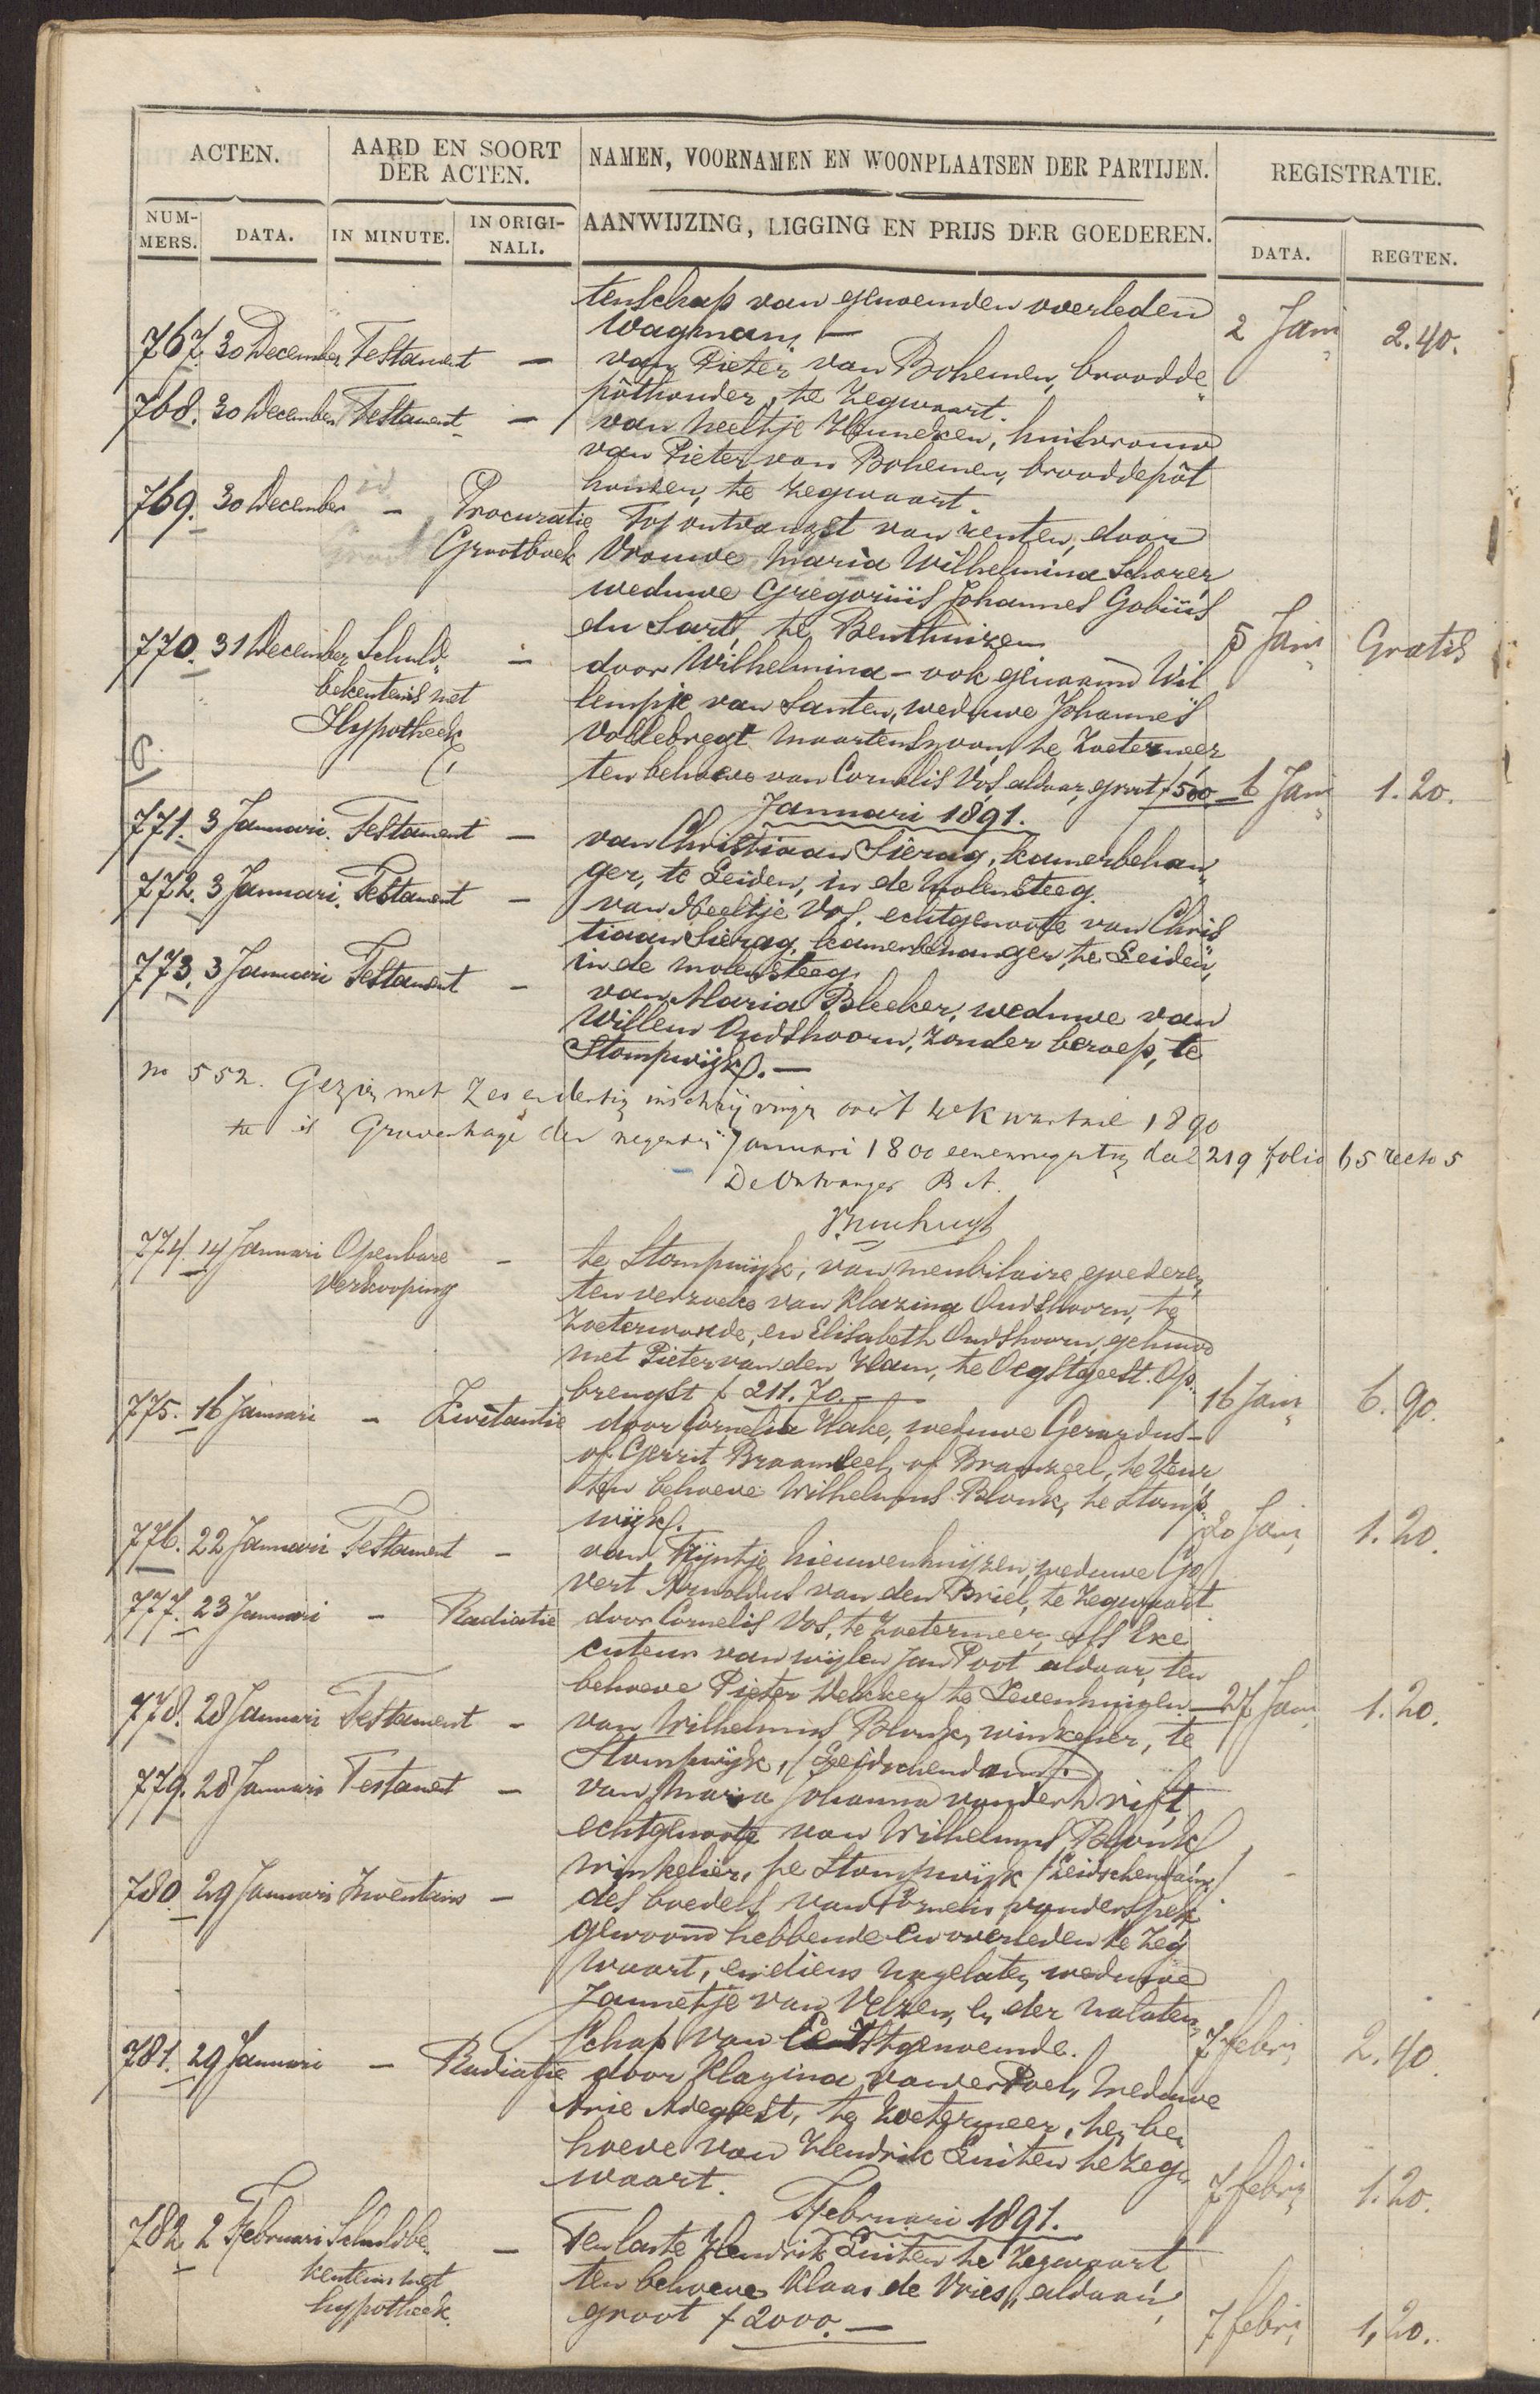 ACTEN. AARD EN SOORT DER ACTEN. NAMEN, VOORNAMEN EN WOONPLAATSEN DER PARTIJEN. REGISTRATIE.
NUMMERS. DATA. IN MINUTE. IN ORIGINALI. AANWIJZING, LIGGING EN PRIJS DER GOEDEREN. DATA. REGTEN.
tenschap van genoemden overleden
Wagman, — 2 Jani 2.40.
767. 30 December Testament — van Pieter van Bohemen, broodde„
pôthouder, te Zegwaart.
768. 30 December Testament — van Neeltje Hunneken, huisvrouw
van Pieter van Bohemen, brooddepôt
houder, te Zegwaart.
769. 30 December — Procuratie Tot ontvangst van renten, door
Grootboek Vrouwe Maria Wilhelmina Schorer,
weduwe Gregoriüs Johannes Gobiüs
du Sart, te Benthuizen 5 Jani Gratis
770. 31 December Schuld„ — door Wilhelmina - ook genaamd Wil
bekentenis met lempje van Santen, weduwe Johannes
Hypotheek Vollebregt Maartenszoon, te Zoetermeer
ten behoeve van Cornelis Vos, aldaar, groot f 500 — 6 Jani 1.20.
Januari 1891.
771. 3 Januari. Testament — van Christiaan Sierag, kamerbehan„
ger, te Leiden, in de Molensteeg.
772. 3 Januari. Testament — van Neeltje Vos, echtgenoote van Chris
tiaan Sierag, kamerbehanger, te Leiden,
in de Molensteeg.
773. 3 Januari Testament — van Maria Bleeker, weduwe van
Willem Oudshoorn, zonder beroep, te
Stompwijk. —
no 552. Gezien met zes en dertig inschrijvingen over 't 4e Kwartaal 1890
te 's Gravenhage den negenden Januari 1800 eenennegentig deel 219 folio 65 recto 5
De Ontvanger B A.
774. 14 Januari Openbare — te Stompwijk, van meubilaire goederen,
Verkooping ten verzoeke van Klazina Oudshoorn, te
Zoeterwoude, en Elisabeth Oudshoorn, gehuwd
met Pieter van den Ham, te Oegstgeest. Op„
brengst f 211.70. — 16 Jani 6.90.
775. 16 Januari — Kwitantie door Cornelia Hake, weduwe Gerardus —
of Gerrit Braamseel, of Bramzeel, te Veur,
ten behoeve Wilhelmus Blonk, te Stomp„
wijk. 20 Jani 1.20.
776. 22 Januari Testament — van Tijntje Nieuwenhuijzen, weduwe Go
vert Arnoldus van den Briel, te Zegwaart
777. 23 Januari — Radiatie door Cornelis Vos, te Zoetermeer, als Exe
cuteur van wijlen Jan Poot aldaar, ten
behoeve Pieter te Zevenhuizen — 27 Jani 1.20.
778. 28 Januari Testament — van Wilhelmus Blonk, winkelier, te
Stompwijk, (Leidschendam).
779. 28 Januari Testament — van Maria Johanna van der Drift,
echtgenoote van Wilhelmus Blonk
winkelier, te Stompwijk (Leidschendam)
780. 29 Januari Inventaris — des boedels van Cornelis van der Spek,
gewoond hebbende en overleden te Zeg
waart, en diens nagelaten weduwe
Jannetje van Velzen, en der nalaten„
schap van Eerstgenoemde. 7 febri 2.40
781. 29 Januari — Radiatie door Klazina van der Poel, Weduwe
Arie Adegeest, te Zoetermeer, ten be„
hoeve van Hendrik Luiten te Zeg„
waart. 7 febri 1.20.
Februari 1891.
782 2 Februari Schuldbe„ — Ten laste Hendrik Luiten te Zegwaart
kentenis met ten behoeve Klaas de Vries, aldaar,
hypotheek. groot f 2000. — 7 febri 1,20.